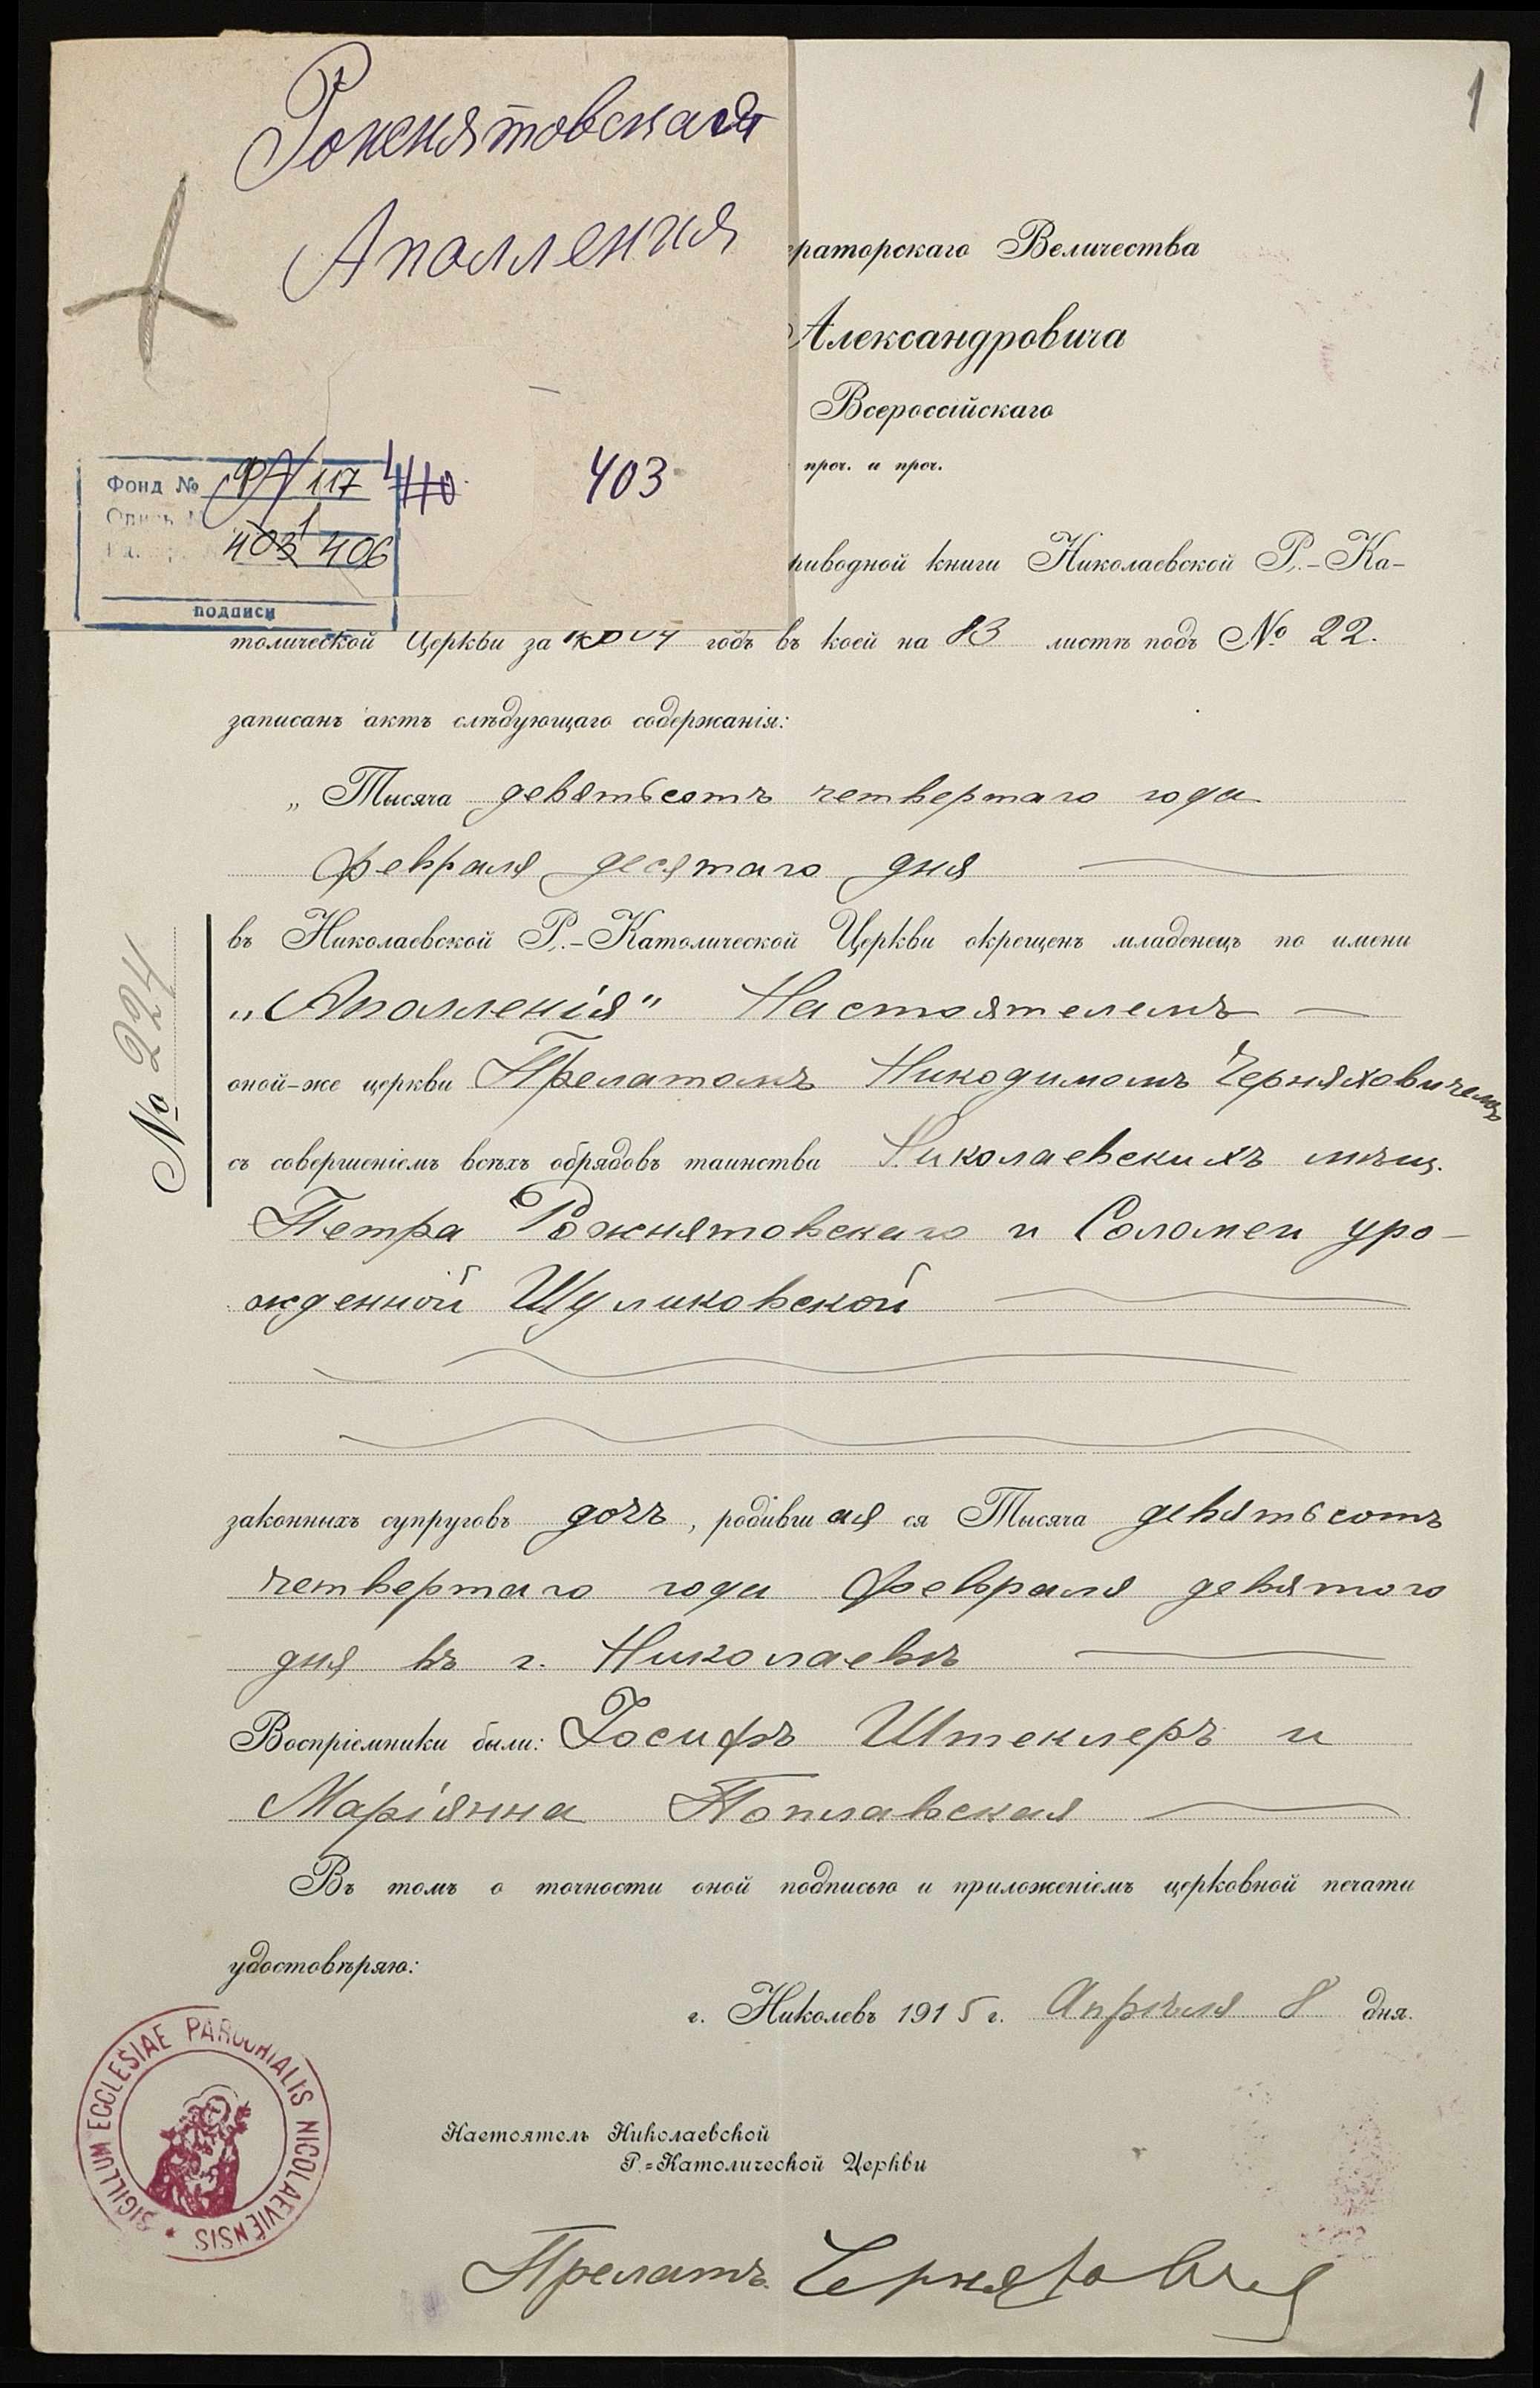 Рожнятовская
Аполления
1
ераторскаго Величества
Александровича
Всероссійскаго
проч. и проч.
Фонд № 117
403 406
подписи
410
403
риводной книги Николаевской Р.-Ка-
толической Церкви за годъ въ коей на 83 листѣ подъ № 22.
записанъ актъ слѣдующаго содержанія:
„Тысяча девятьсотъ четвертаго года
февраля десятаго дня
въ Николаевской Р.-Католической Церкви окрещенъ младенецъ по имени
„Аполленія" Настоятелемъ
оной-же церкви Прелатомъ Никодимомъ Черняховичемъ
съ совершеніемъ всѣхъ обрядовъ таинства Николаевскихъ мѣщ.
Петра Рожнятовскаго и Соломеи уро-
жденной Шуликовской
законныхъ супруговъ дочъ, родившаяся Тысяча девятьсотъ
четвертаго года февраля девятого
дня въ г. Николаевѣ
Воспріемники были: Іосифъ Штеклеръ и
Маріянна Поплавская
Въ томъ о точности оной подписью и приложеніемъ церковной печати
удостовѣряю:
г. Николевъ 1915 г. Апрѣля 8 дня.
№ 224
SIGILLUM ECCLESIAE PAROCHIALIS NICOLAEVIENSIS
Настоятель Николаевской
Р.=Католической Церкви
Прелатъ Черняхович